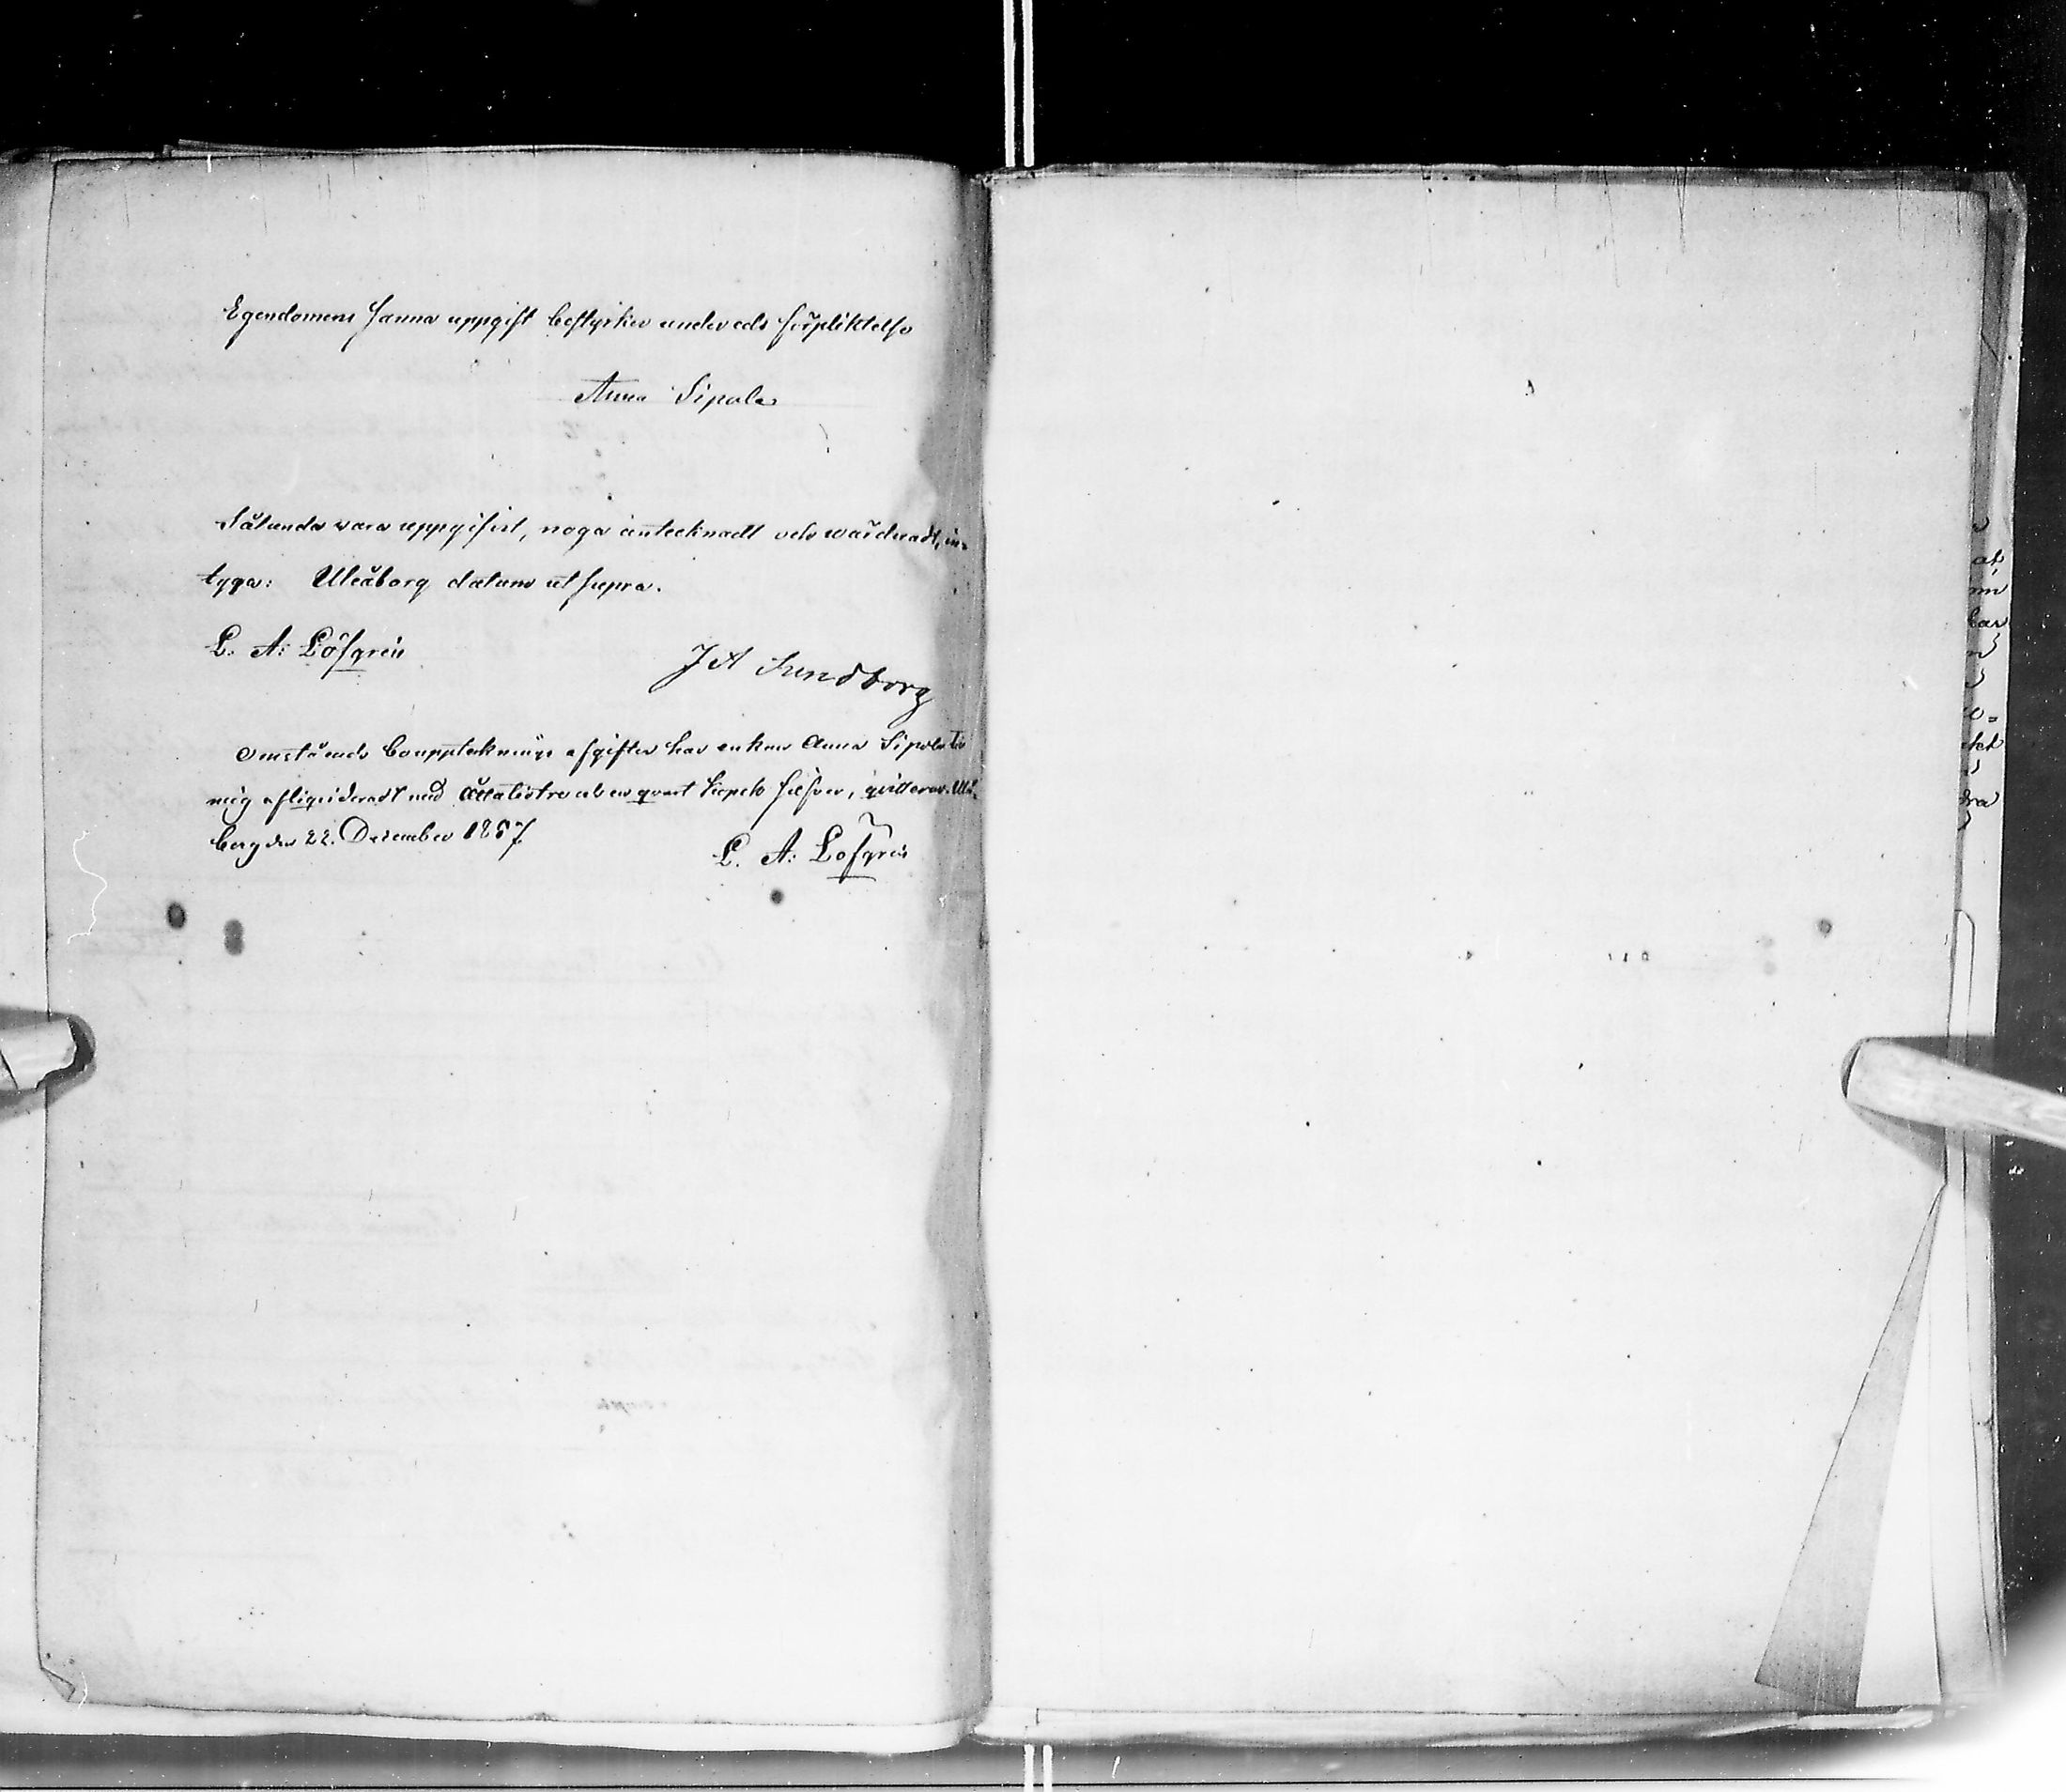 Egendomens sanna uppgift bestyrker under eds förpliktelse
Anna Sipola
Sålunda vara uppgifvit, noga antecknadt och wärderadt, in-
tyga: Uleåborg datum ut supra.
L. A: Löfgren
J A Sundborg
Omstående bouppteknings afgifter har enkan Anna Sipola til
mig afliqvideradt med åttatiotre och en qvart kopek silfver, qvitteras. Uleå-
borg den 22. December 1857.
L. A: Löfgren